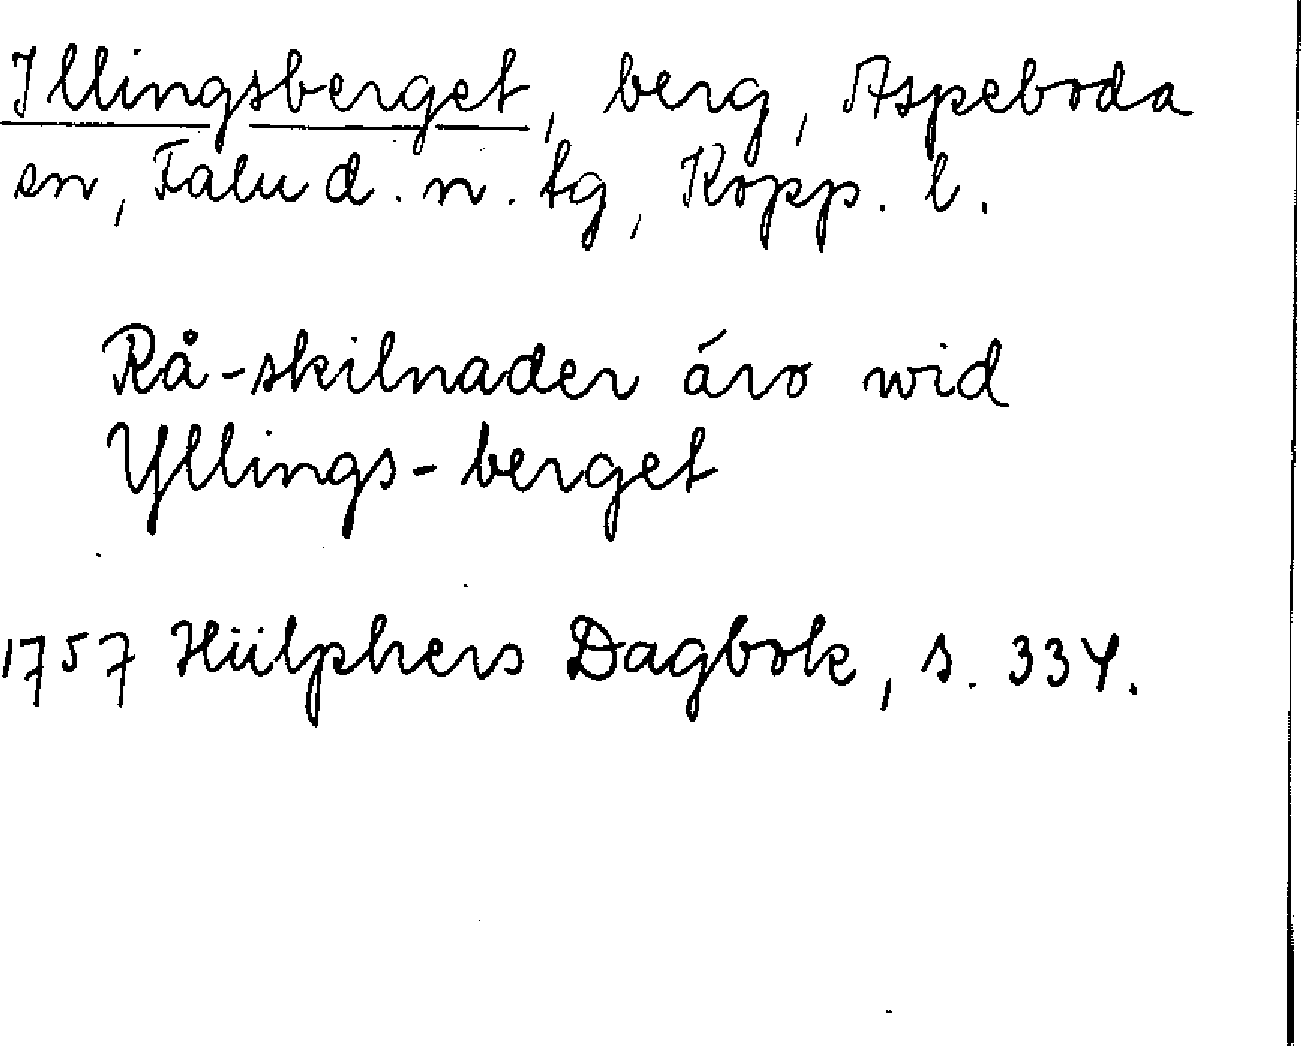 Illingsberget, berg, Aspeboda
sn, Falu d. n. tg, Kopp. l.
Rå-skilnader äro wid
Yllings-berget
1757 Hülphers Dagbok, s. 334.